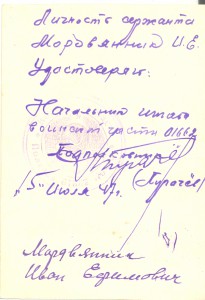 Личность сержанта
Мордвянник И.Е.
Удостоверяю:
Начальник штаба
воинской части 01662
Подполковник
"5" июля 47г.
Мордвянник
Иван Ефимович